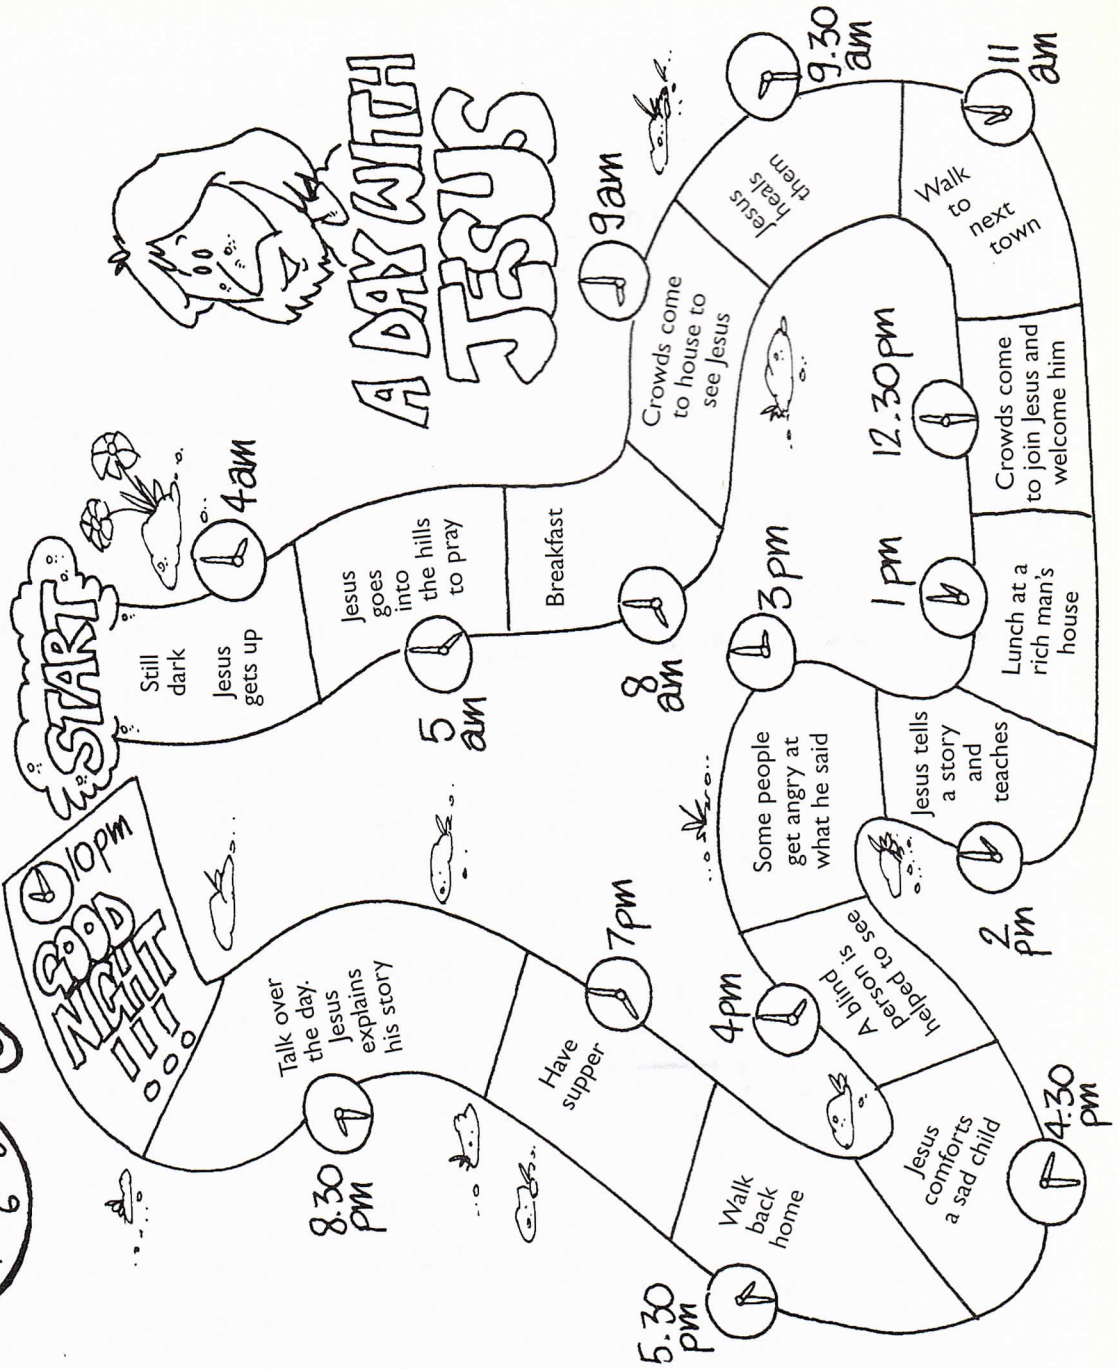 A DAY WITH
JESUS
START
Still
dark
Jesus
gets up
4am
Jesus
goes
into
the hills
to pray
5
am
Breakfast
8
am
Crowds come
to house to
see Jesus
9am
Jesus
heals
them
9.30
am
Walk
to
next
town
11
am
Crowds come
to join Jesus and
welcome him
12.30pm
Lunch at a
rich man's
house
1pm
Jesus tells
a story
and
teaches
2
pm
Some people
get angry at
what he said
3pm
A blind
person is
helped to see
4pm
Jesus
comforts
a sad child
4.30
pm
Walk
back
home
5.30
pm
Have
supper
7pm
Talk over
the day.
Jesus
explains
his story
8.30
pm
GOOD
NIGHT
!!!
10pm
6